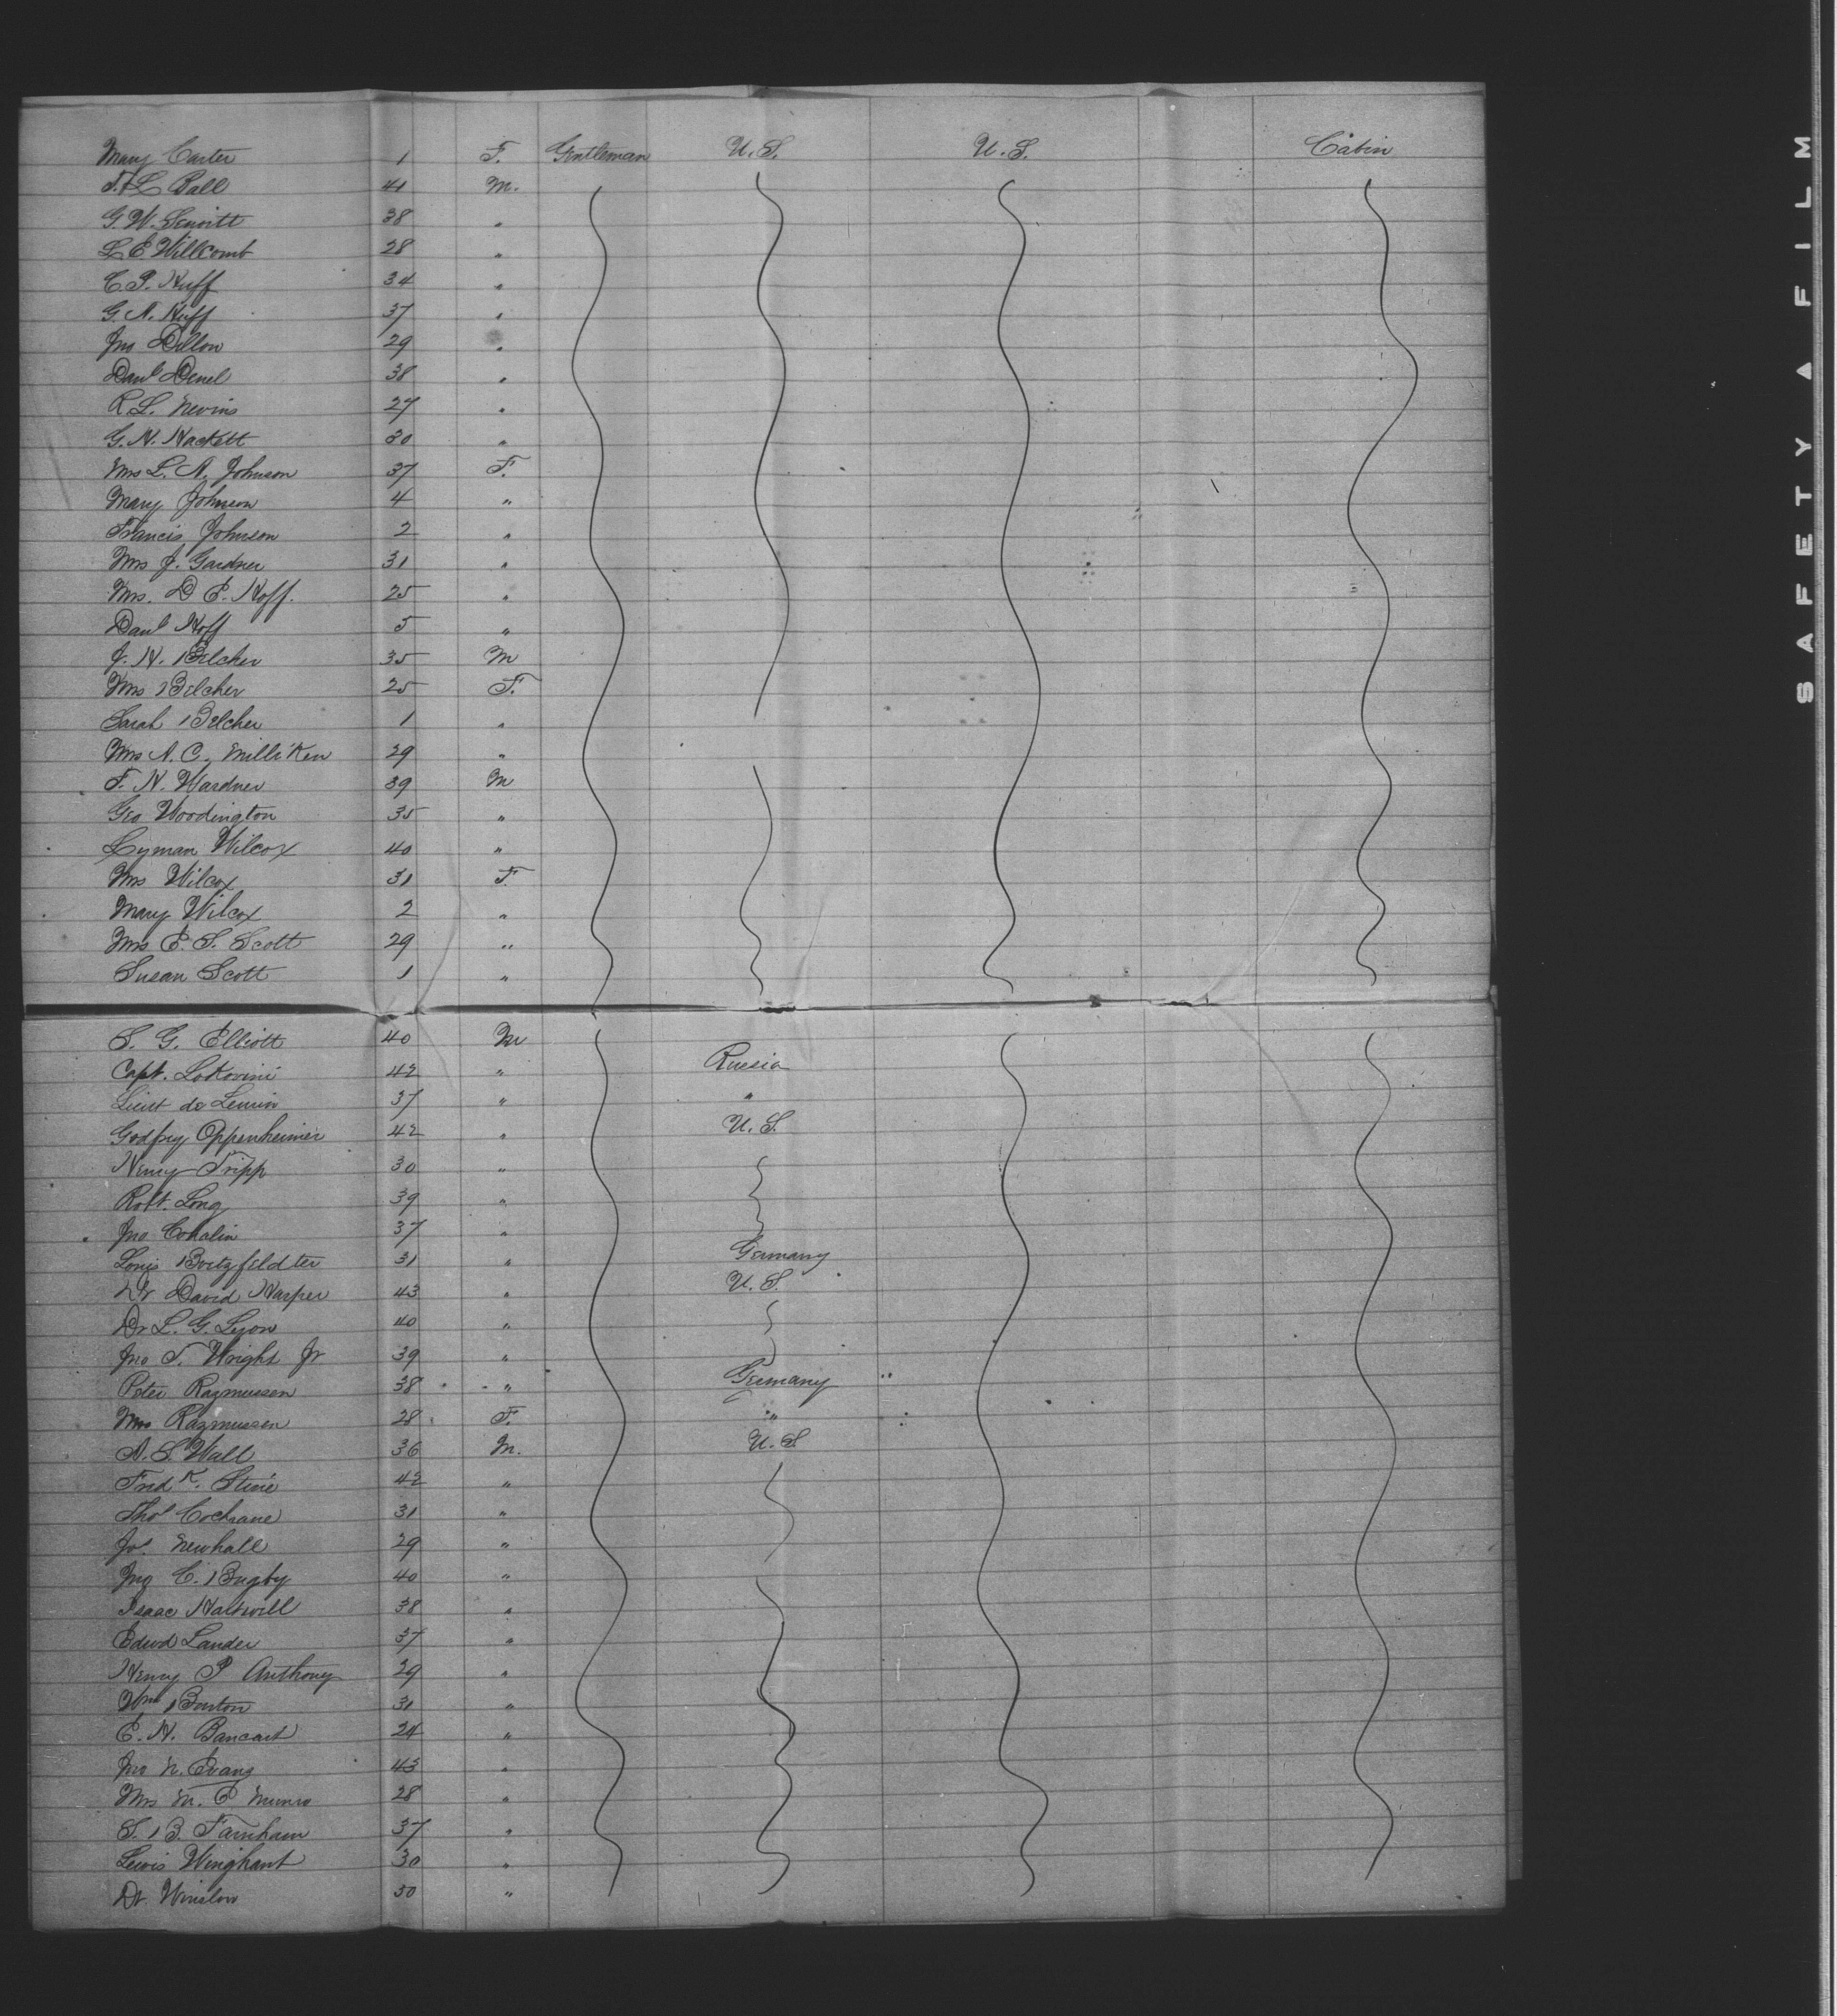 Mary Carter 1 F. Gentleman U.S. U.S. Cabin
L Ball 41 M.
G. W. 38 "
L E Willcomb 28 "
C. P. Huff 34 "
G. A. Huff 37 "
Jno Dillon 29 "
Danl Denel 38 "
R. L. Nevins 27 "
G. N. Hackett 30 "
Mrs L. A. Johnson 37 F.
Mary Johnson 4 "
Francis Johnson 2 "
Mrs J. Gardner 31 "
Mrs. D E. Hoff. 25 "
Danl Hoff 5 "
J. H. Belcher 35 M
Mrs Belcher 25 F.
Sarah Belcher 1 "
Mrs A. C. Milliken 29 "
F. H. Wardner 39 M
Geo Woodington 35 "
Lyman Wilcox 40 "
Mrs Wilcox 31 F.
Mary Wilcox 2 "
Mrs E. S. Scott 29 "
Susan Scott 1 "
S. G. Elliott 40 M
Capt. Lokovini 42 " Russia
Lieut de Lenin 37 " "
Godfrey Oppenheimer 42 " U.S.
Henry Tripp 30 "
Robt. Long 39 "
Jno Cohalin 37 "
Louis 31 " Germany
Dr David Harper 43 " U.S.
Dr L. G. Lyon 40 "
Jno T. Wright Jr 39 "
Peter Razmussen 38 " Germany
Mrs Razmussen 28 F. "
A. S. Wall 36 M. U.S.
Fredk. Stine 42 "
Thos Cochrane 31 "
Jos. Newhall 29 "
Jno C. Bugby 40 "
Isaac Hartwell 38 "
Edwd Lander 37 "
Henry P Anthony 29 "
Wm Benton 31 "
E. H. Bancart 24 "
Jno N. Evans 43 "
Mrs M. E Munro 28 "
S. B. Farnham 37 "
Lewis Winghant 30 "
Dr. Winslow 50 "
SAFETY A FILM